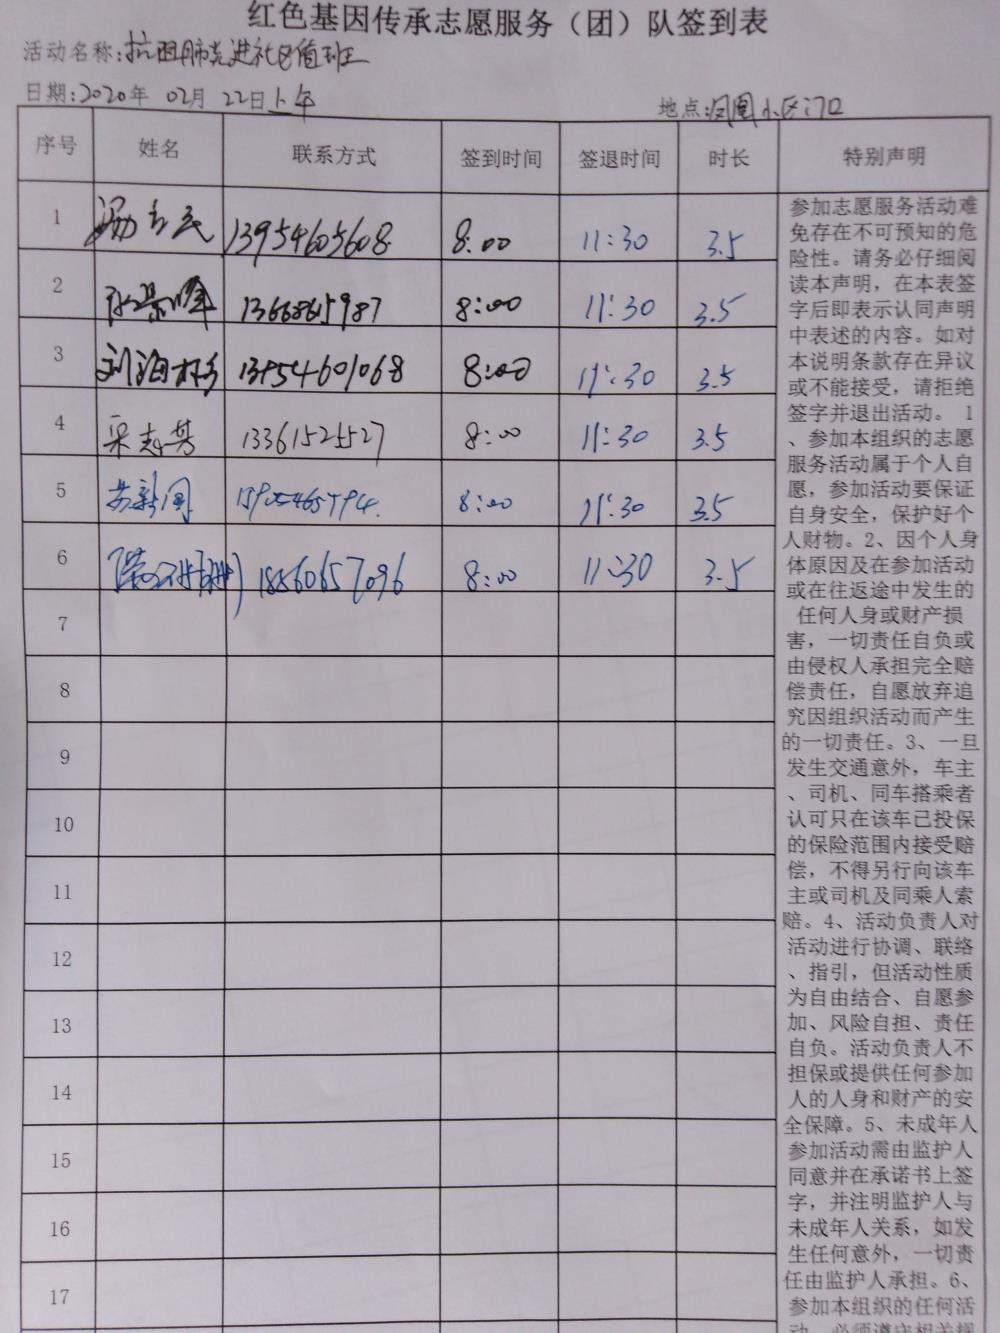 红色基因传承志愿服务（团）队签到表
活动名称：抗击肺炎进社区值班
日期：2020年 02月 22日上午 地点：凤凰小区门口
序号 姓名 联系方式 签到时间 签退时间 时长 特别声明
1 13954605608 8:00 11:30 3.5
2 13668615987 8:00 11:30 3.5
3 刘海 13954601068 8:00 11:30 3.5
4 宋志芳 13361525527 8:00 11:30 3.5
5 苏新闻 8:00 11:30 3.5
6 18560657096 8:00 11:30 3.5
7
8
9
10
11
12
13
14
15
16
17
参加志愿服务活动难
免存在不可预知的危
险性。请务必仔细阅
读本声明，在本表签
字后即表示认同声明
中表述的内容。如对
本说明条款存在异议
或不能接受，请拒绝
签字并退出活动。 1
、参加本组织的志愿
服务活动属于个人自
愿，参加活动要保证
自身安全，保护好个
人财物。2、因个人身
体原因及在参加活动
或在往返途中发生的
任何人身或财产损
害，一切责任自负或
由侵权人承担完全赔
偿责任，自愿放弃追
究因组织活动而产生
的一切责任。3、一旦
发生交通意外，车主
、司机、同车搭乘者
认可只在该车已投保
的保险范围内接受赔
偿，不得另行向该车
主或司机及同乘人索
赔。4、活动负责人对
活动进行协调、联络
、指引，但活动性质
为自由结合、自愿参
加、风险自担、责任
自负。活动负责人不
担保或提供任何参加
人的人身和财产的安
全保障。5、未成年人
参加活动需由监护人
同意并在承诺书上签
字，并注明监护人与
未成年人关系，如发
生任何意外，一切责
任由监护人承担。6、
参加本组织的任何活
动，必须遵守相关规